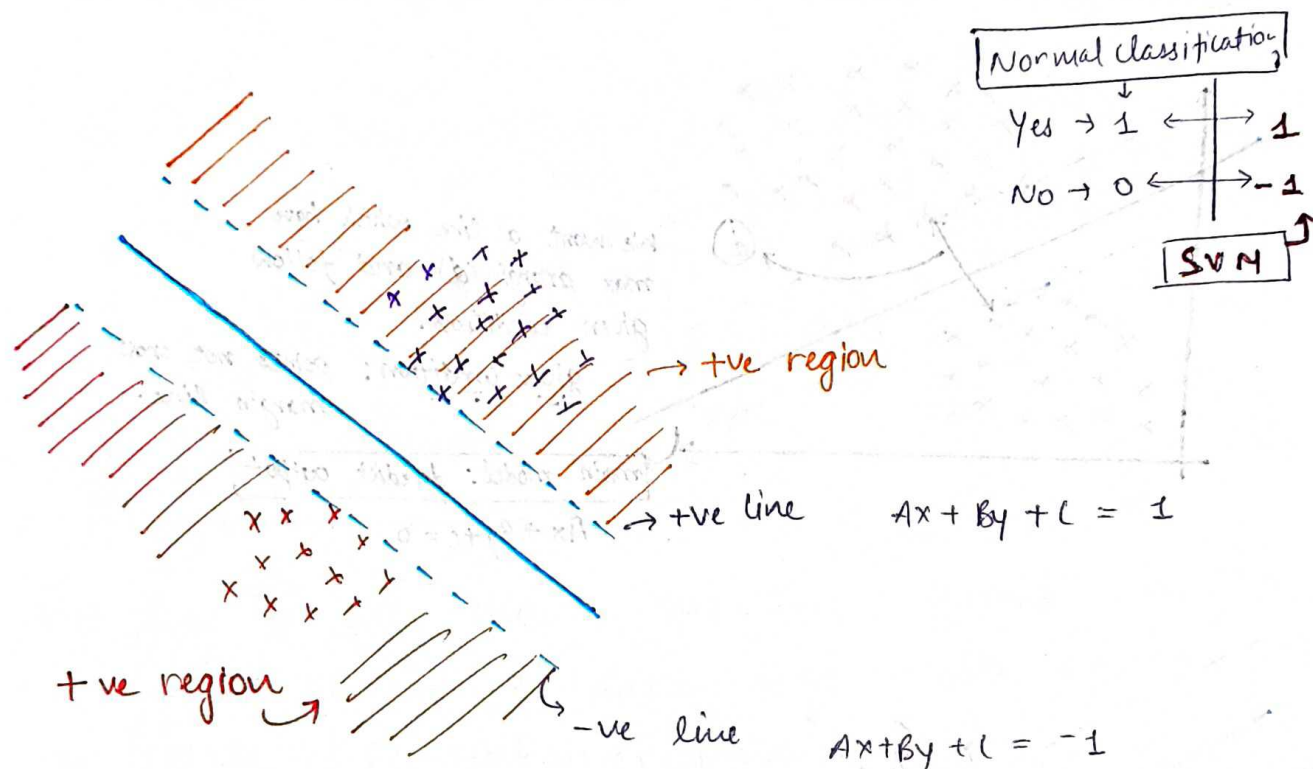 Normal Classification
Yes → 1 ↔ 1
No → 0 ↔ -1
SVM
→ +ve region
→ +ve line Ax + By + C = 1
+ve region
-ve line Ax+By + C = -1